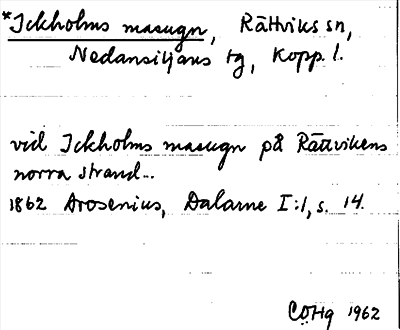 *Ickholms masugn, Rättviks sn,
Nedansiljans tg, Kopp. l.
vid Ickholms masugn på Rättvikens
norra strand...
1862 Arosenius, Dalarne I:1, s. 14.
COHg 1962